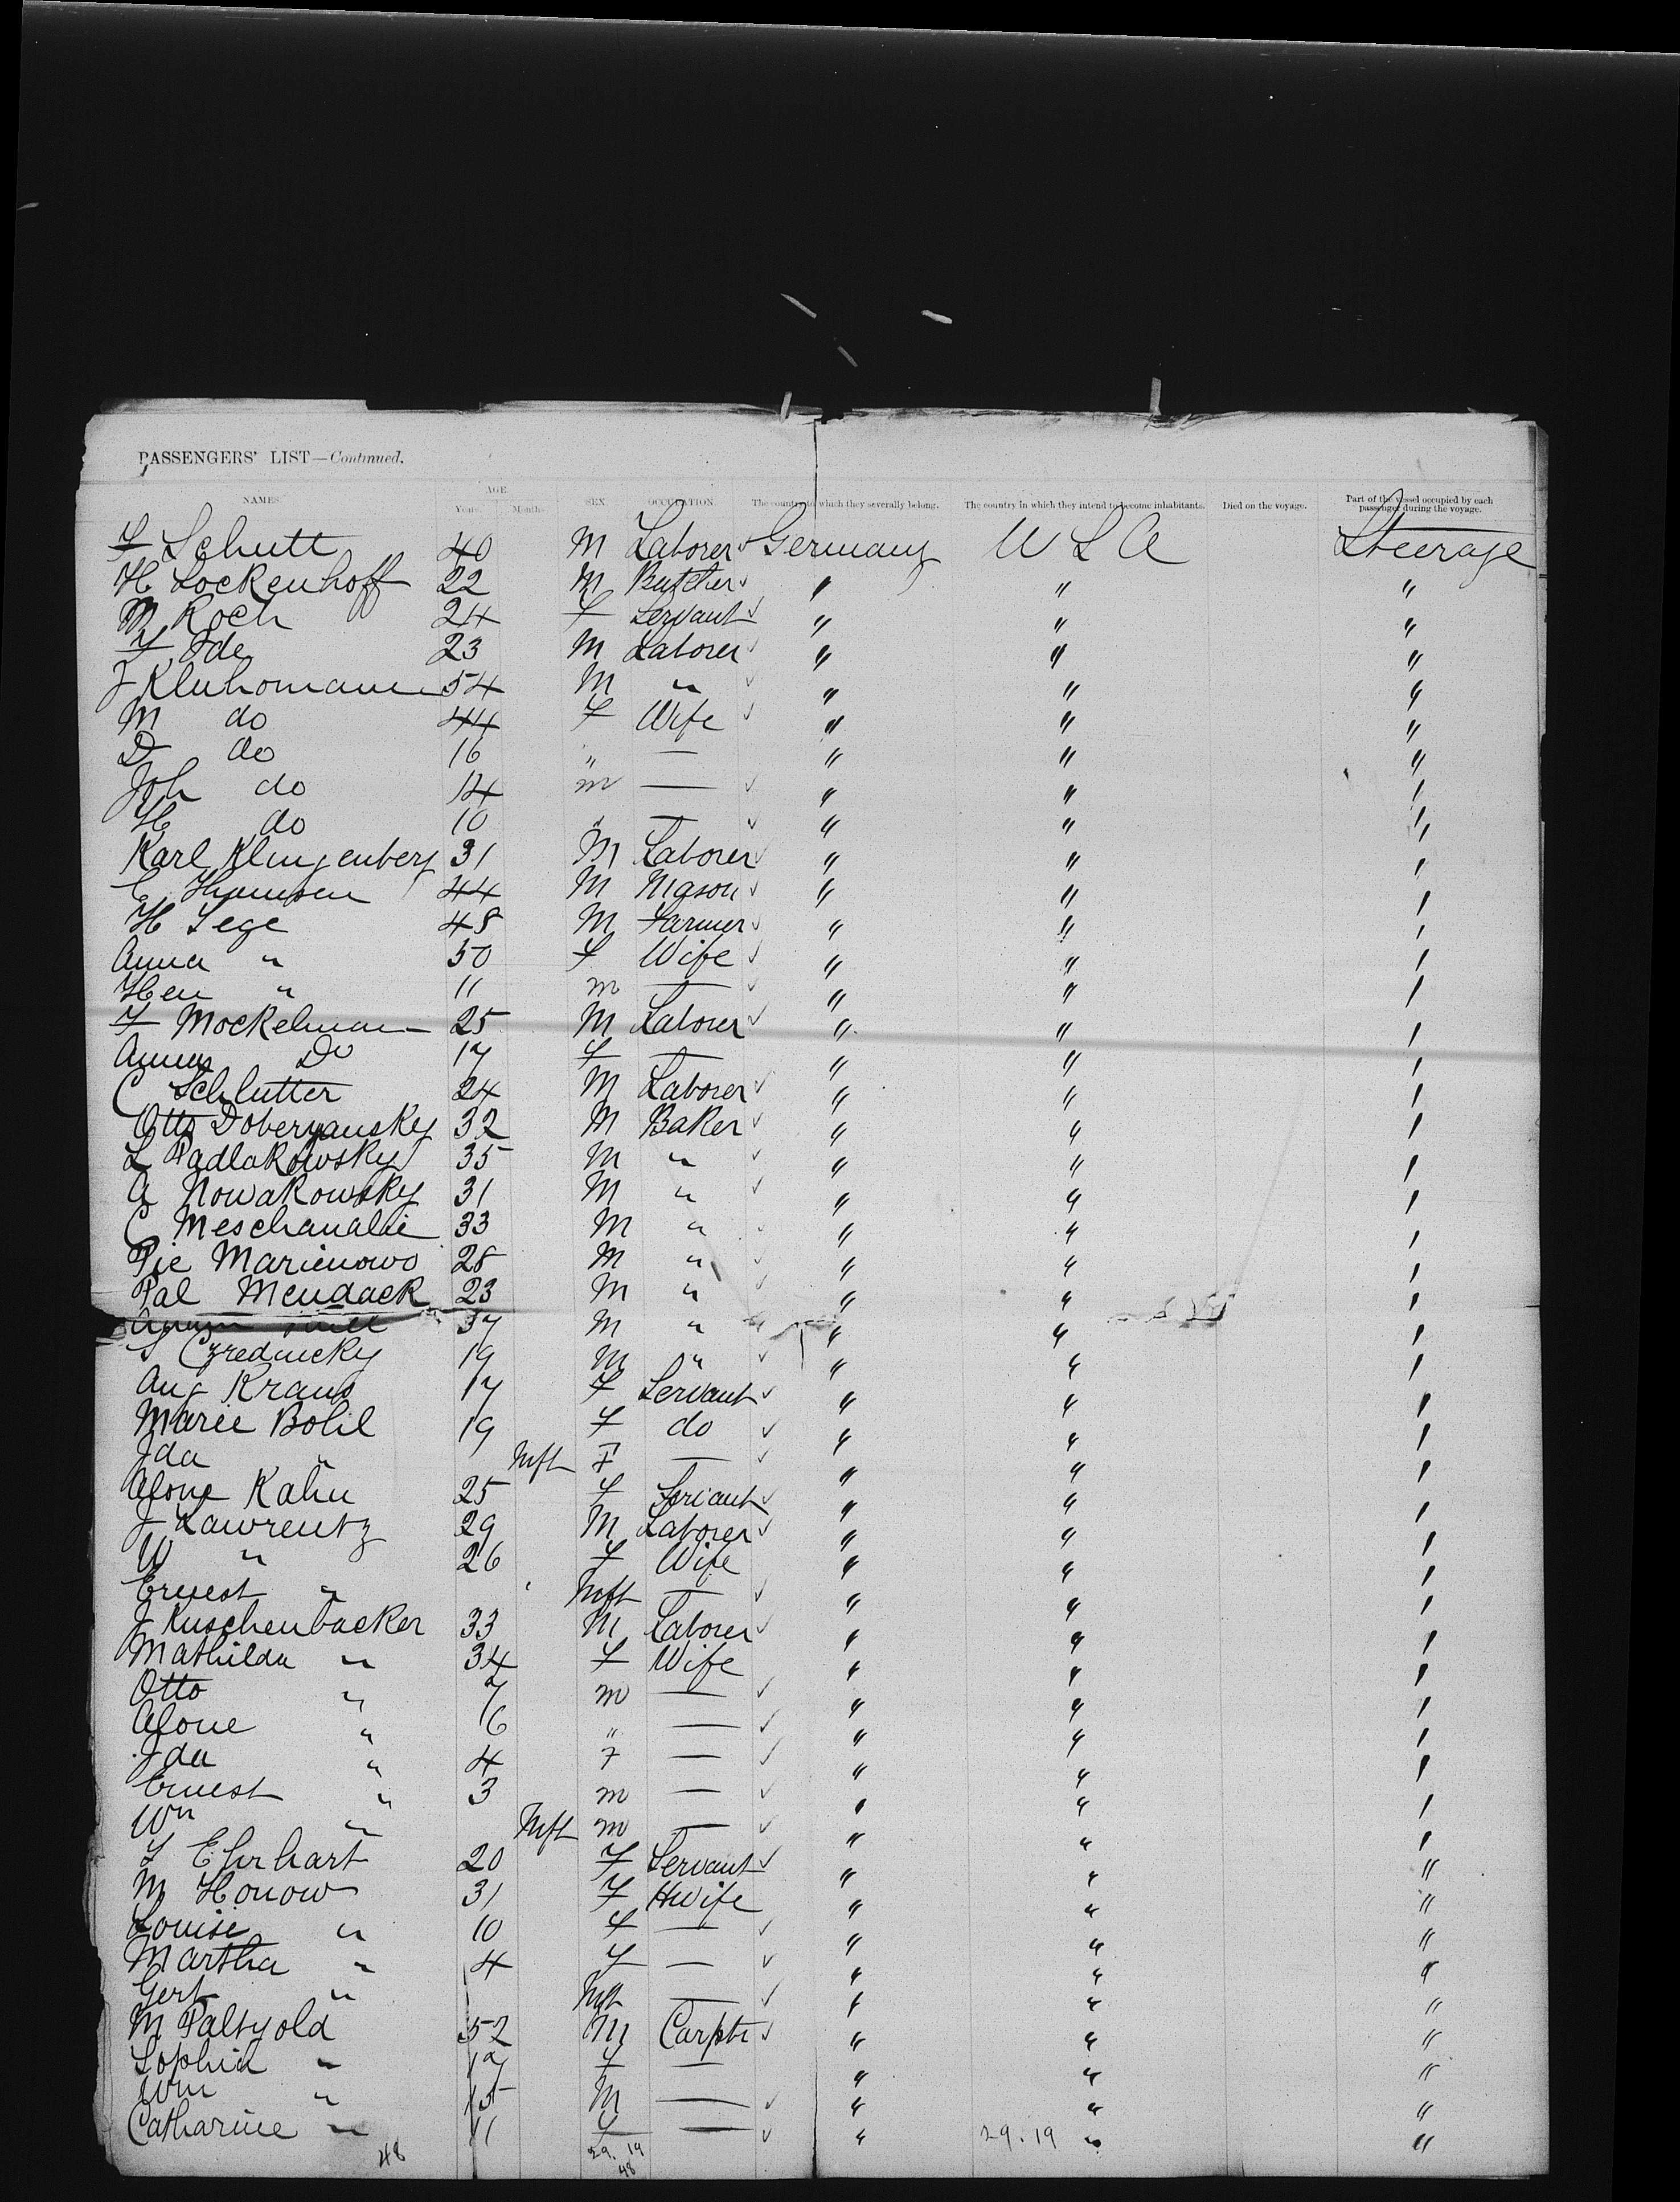 PASSENGERS' LIST—Continued.
NAMES. AGE. Years. Months. SEX. OCCUPATION. The country to which they severally belong. The country in which they intend to become inhabitants. Died on the voyage. Part of the vessel occupied by each passenger during the voyage.
F Schutt 40 M Laborer Germany U S A Steerage
H Lockenhoff 22 M Butcher " " "
M Koch 24 F Servant " " "
F Ide 23 M Laborer " " "
J Kluhomann 54 M " " " "
M do 44 F Wife " " "
D do 16 " — " " "
Joh do 14 m — " " "
H do 10 " — " " "
Karl Klingenberg 31 M Laborer " " "
C Thomsen 44 M Mason " " "
H Lege 48 M Farmer " " "
Anna " 50 F Wife " " "
Hen " 11 m — " " "
F Mockelman 25 M Laborer " " "
Do 17 F — " " "
C Schlutter 24 M Laborer " " "
Otto Doberyansky 32 M Baker " " "
L Padlakowsky 35 M " " " "
A Nowakowsky 31 M " " " "
C 33 M " " " "
Pie Marienowo 28 M " " " "
Pal Mendack 23 M " " " "
37 M " " " "
S Czrednicky 19 M " " " "
Aug Kraus 17 F Servant " " "
Marie Bohl 19 F do " " "
Ida " Inft F — " " "
Kahn 25 F Servant " " "
J Lawrentz 29 M Laborer " " "
W " 26 F Wife " " "
Ernest " Inft — " " "
J Kuschenbacker 33 M Laborer " " "
Mathilda " 34 F Wife " " "
Otto " 7 m — " " "
" 6 " — " " "
Ida " 4 F — " " "
Ernest " 3 m — " " "
Wm " Inft m — " " "
Ehrhart 20 F Servant " " "
M Honow 31 F HWife " " "
Louise " 10 F — " " "
Martha " 4 F — " " "
Gert " Inft — " " "
M Paltzold 52 M Carptr " " "
Sophia " 17 F — " " "
Wm " 15 M — " " "
Catharine " 11 F — " " "
48 29. 19 29. 19
48